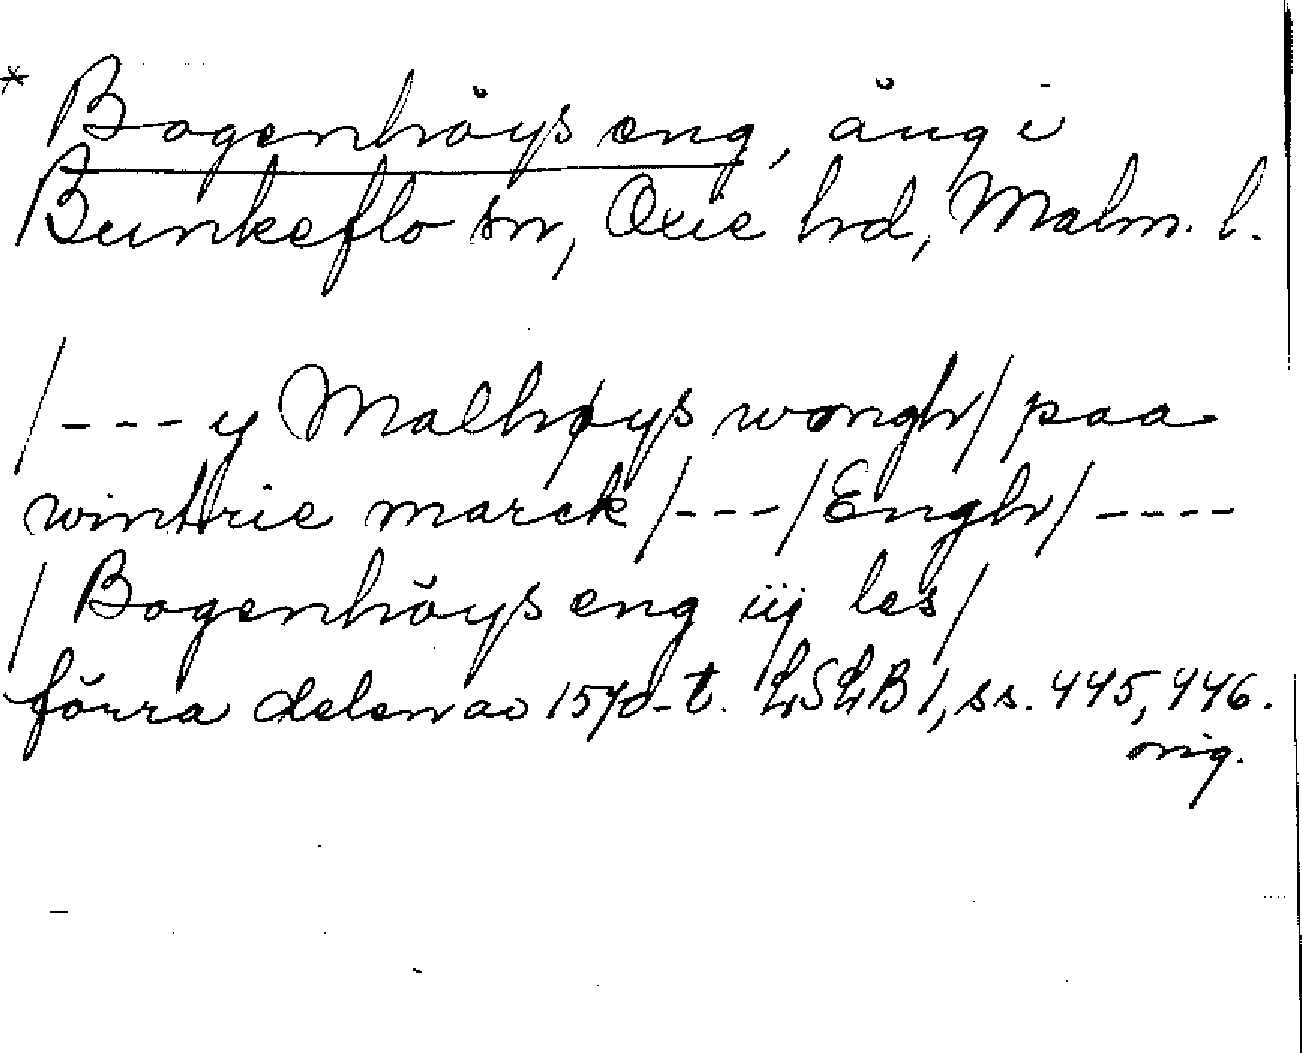 * Bogenhöys eng, äng i
Bunkeflo sn, Oxie hd, Malm. l.
/--- y Malhøys wongh/ paa
wintrie marck/---/Engh/----
/Bogenhöys eng iij les/
förra delen av 1570-t. LSLB 1, ss. 445, 446.
orig.